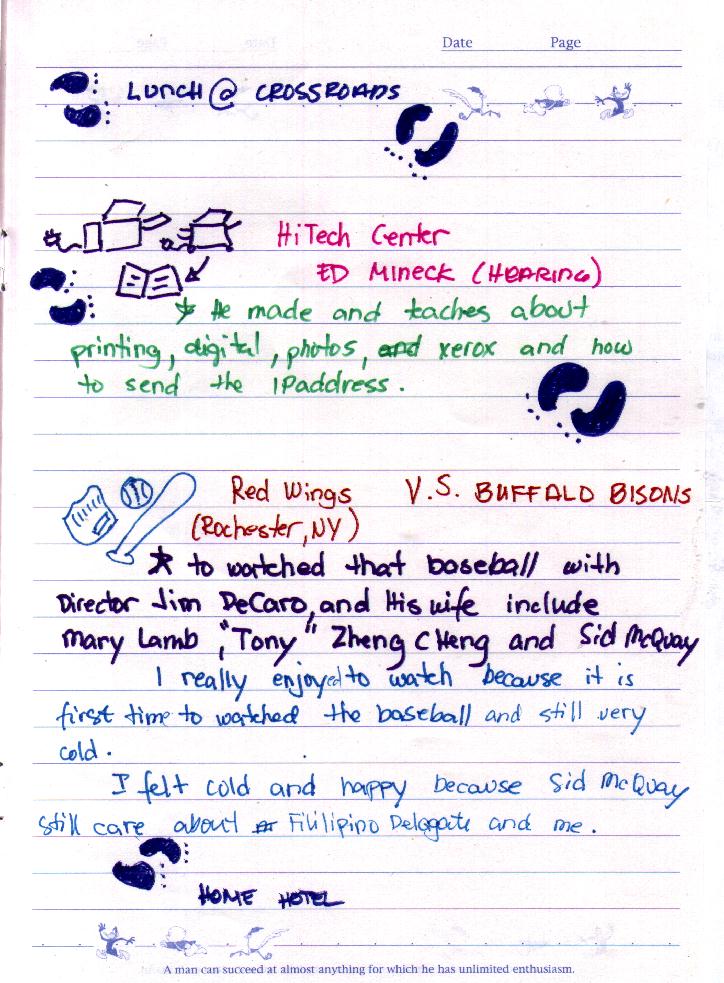 Date Page
LUNCH @ CROSSROADS
HiTech Center
ED MINECK (HEARING)
* He made and taches about
printing, digital, photos, and xerox and how
to send the IPaddress.
Red Wings V.S. BUFFALO BISONS
(Rochester, NY)
* to watched that baseball with
Director Jim DeCaro, and His wife include
Mary Lamb, "Tony" Zheng CHeng and Sid McQuay
I really enjoyed to watch because it is
first time to watched the baseball and still very
cold.
I felt cold and happy because Sid McQuay
still care about Fililipino Delagate and me.
HOME HOTEL
A man can succeed at almost anything for which he has unlimited enthusiasm.